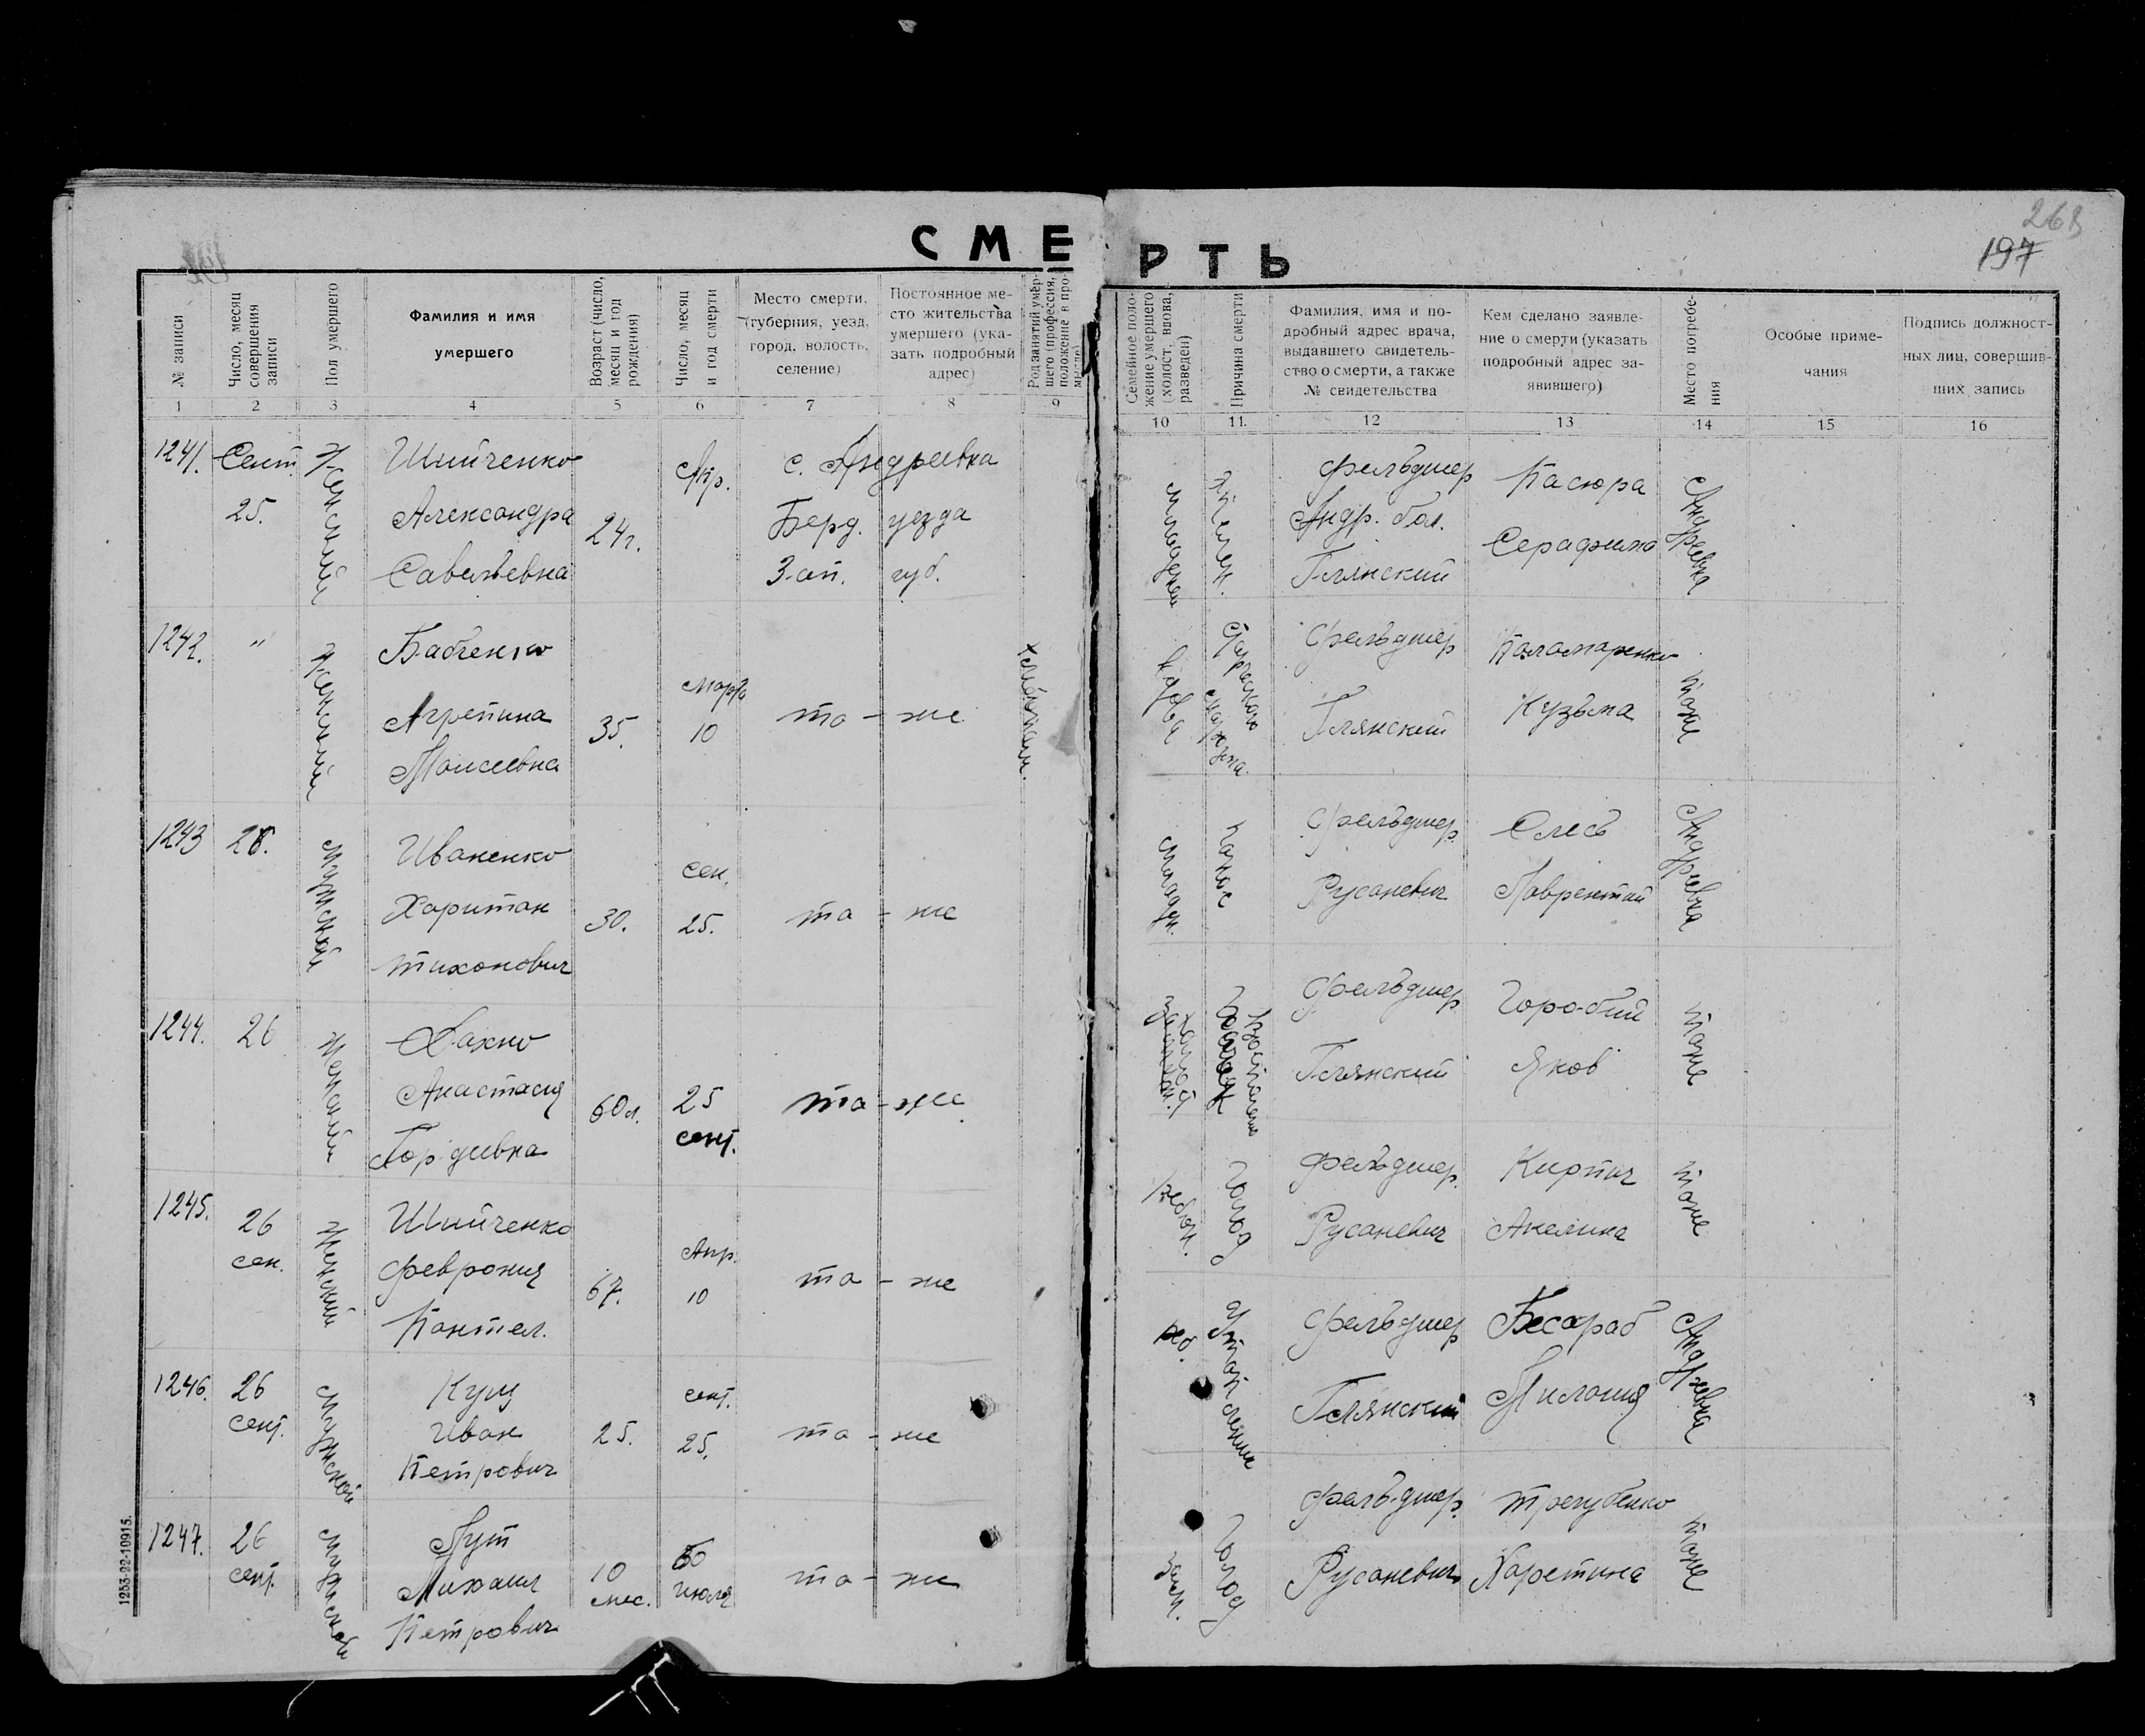 СМЕРТЬ
263
197
№ записи
Число, месяц совершения записи
Пол умершего
Фамилия и имя умершего
Возраст (число, месяц и год рождения)
Число, месяц и год смерти
Место смерти, (губерния, уезд, город, волость, селение)
Постоянное место жительства умершего (указать подробный адрес)
Род занятий умершего (профессия, положение в промысле)
Семейное положение умершего (холост, вдова, разведен)
Причина смерти
Фамилия, имя и подробный адрес врача, выдавшего свидетельство о смерти, а также № свидетельства
Кем сделано заявление о смерти (указать подробный адрес заявившего)
Место погребения
Особые примечания
Подпись должностных лиц, совершивших запись
1 2 3 4 5 6 7 8 9 10 11. 12 13 14 15 16
1241. Сент. 25. Женский
Шийченко
Александра
Савельевна
24г.
Апр.
с. Андреевка
Берд. уезда
Зап. губ.
Фельдшер
Андр. бол.
Глянский
Касюра
Серафима
Андреевка
1242. " Женский
Бабченко
Агрепина
Моисеевна
35.
Марта
10
то - же
вдова
Фельдшер
Глянский
Паламаренко
Кузьма
тоже
1243 26. Мужской
Иваненко
Харитон
Тихонович
30.
сен.
25.
то - же
Фельдшер.
Русаневич
Олесь
Лаврентий
Андреевка
1244. 26 Женский
Вахно
Анастасия
Гордеевна
60л.
25
сент.
то - же
Фельдшер.
Глянский
Горобий
Яков
тоже
1245. 26 сен. Женский
Шийченко
Феврония
Пантел.
67.
Апр.
10
то - же
Голод
Фельдшер.
Русаневич
Кирпич
Акелина
тоже
1246. 26 сент. Мужской
Кущ
Иван
Петрович
25.
сент.
25.
то - же
Фельдшер
Глянский
Бесараб
Милания
Андреевка
1247. 26 сент. Мужской
Лут
Михаил
Петрович
10
мес.
июля
то - же
Голод
Фельдшер.
Русаневич
Трегубенко
Харетина
тоже
1253-22-10915.